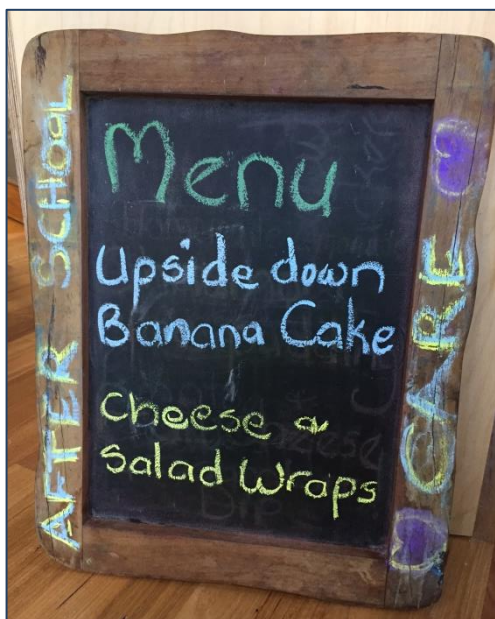 AFTER SCHOOL
Menu
Upside down
Banana Cake
Cheese &
Salad Wraps
CARE